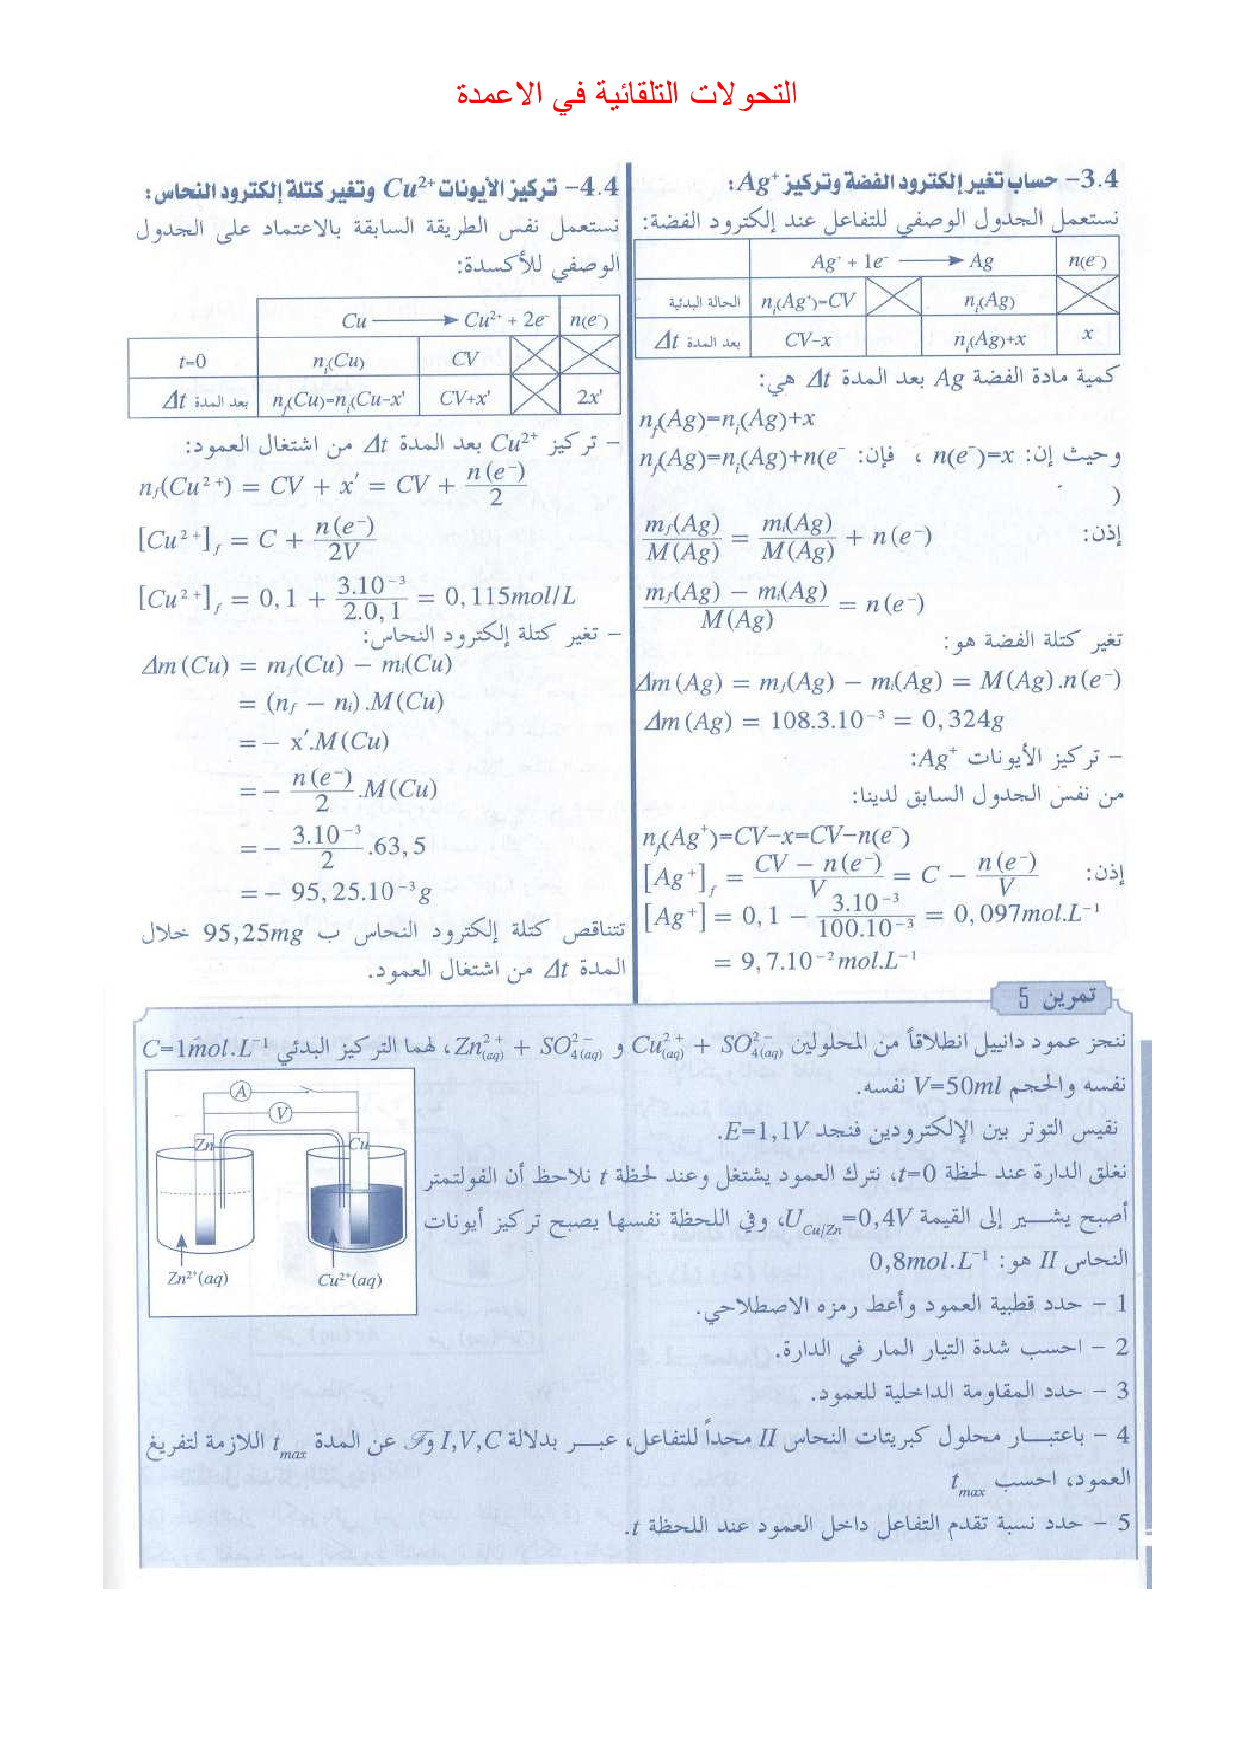 التحولات التلقائية في الاعمدة
3.4- حساب تغير إلكترود الفضة وتركيز Ag⁺:
نستعمل الجدول الوصفي للتفاعل عند إلكترود الفضة:
Ag⁺ + 1e⁻ ⟶ Ag n(e⁻)
الحالة البدئية nᵢ(Ag⁺)=CV nᵢ(Ag)
بعد المدة Δt CV-x nᵢ(Ag)+x x
كمية مادة الفضة Ag بعد المدة Δt هي:
n_f(Ag)=nᵢ(Ag)+x
وحيث إن: n(e⁻)=x ، فإن: n_f(Ag)=nᵢ(Ag)+n(e⁻
)
إذن: m_f(Ag)/M(Ag) = mᵢ(Ag)/M(Ag) + n(e⁻)
(m_f(Ag) − mᵢ(Ag))/M(Ag) = n(e⁻)
تغير كتلة الفضة هو:
Δm(Ag) = m_f(Ag) − mᵢ(Ag) = M(Ag).n(e⁻)
Δm(Ag) = 108.3.10⁻³ = 0,324g
- تركيز الأيونات Ag⁺:
من نفس الجدول السابق لدينا:
n_f(Ag⁺)=CV-x=CV-n(e⁻)
إذن: [Ag⁺]_f = (CV − n(e⁻))/V = C − n(e⁻)/V
[Ag⁺] = 0,1 − 3.10⁻³/100.10⁻³ = 0,097mol.L⁻¹
= 9,7.10⁻²mol.L⁻¹
4.4- تركيز الأيونات Cu²⁺ وتغير كتلة إلكترود النحاس:
نستعمل نفس الطريقة السابقة بالاعتماد على الجدول
الوصفي للأكسدة:
Cu ⟶ Cu²⁺ + 2e⁻ n(e⁻)
t=0 nᵢ(Cu) CV
بعد المدة Δt n_f(Cu)=nᵢ(Cu-x' CV+x' 2x'
- تركيز Cu²⁺ بعد المدة Δt من اشتغال العمود:
n_f(Cu²⁺) = CV + x' = CV + n(e⁻)/2
[Cu²⁺]_f = C + n(e⁻)/2V
[Cu²⁺]_f = 0,1 + 3.10⁻³/2.0,1 = 0,115mol/L
- تغير كتلة إلكترود النحاس:
Δm(Cu) = m_f(Cu) − mᵢ(Cu)
= (n_f − nᵢ).M(Cu)
= − x'.M(Cu)
= − n(e⁻)/2 .M(Cu)
= − 3.10⁻³/2 .63,5
= − 95,25.10⁻³g
تتناقص كتلة إلكترود النحاس ب 95,25mg خلال
المدة Δt من اشتغال العمود.
تمرين 5
ننجز عمود دانييل انطلاقاً من المحلولين Cu²⁺(aq) + SO₄²⁻(aq) و Zn²⁺(aq) + SO₄²⁻(aq)، لهما التركيز البدئي C=1mol.L⁻¹
نفسه والحجم V=50ml نفسه.
نقيس التوتر بين الإلكترودين فنجد E=1,1V.
نغلق الدارة عند لحظة t=0، نترك العمود يشتغل وعند لحظة t نلاحظ أن الفولتمتر
أصبح يشير إلى القيمة U_Cu/Zn=0,4V، وفي اللحظة نفسها يصبح تركيز أيونات
النحاس II هو: 0,8mol.L⁻¹
1 - حدد قطبية العمود وأعط رمزه الاصطلاحي.
2 - احسب شدة التيار المار في الدارة.
3 - حدد المقاومة الداخلية للعمود.
4 - باعتبار محلول كبريتات النحاس II محداً للتفاعل، عبر بدلالة I,V,C و ℱ عن المدة t_max اللازمة لتفريغ
العمود، احسب t_max
5 - حدد نسبة تقدم التفاعل داخل العمود عند اللحظة t.
A
V
Zn
Cu
Zn²⁺(aq)
Cu²⁺(aq)